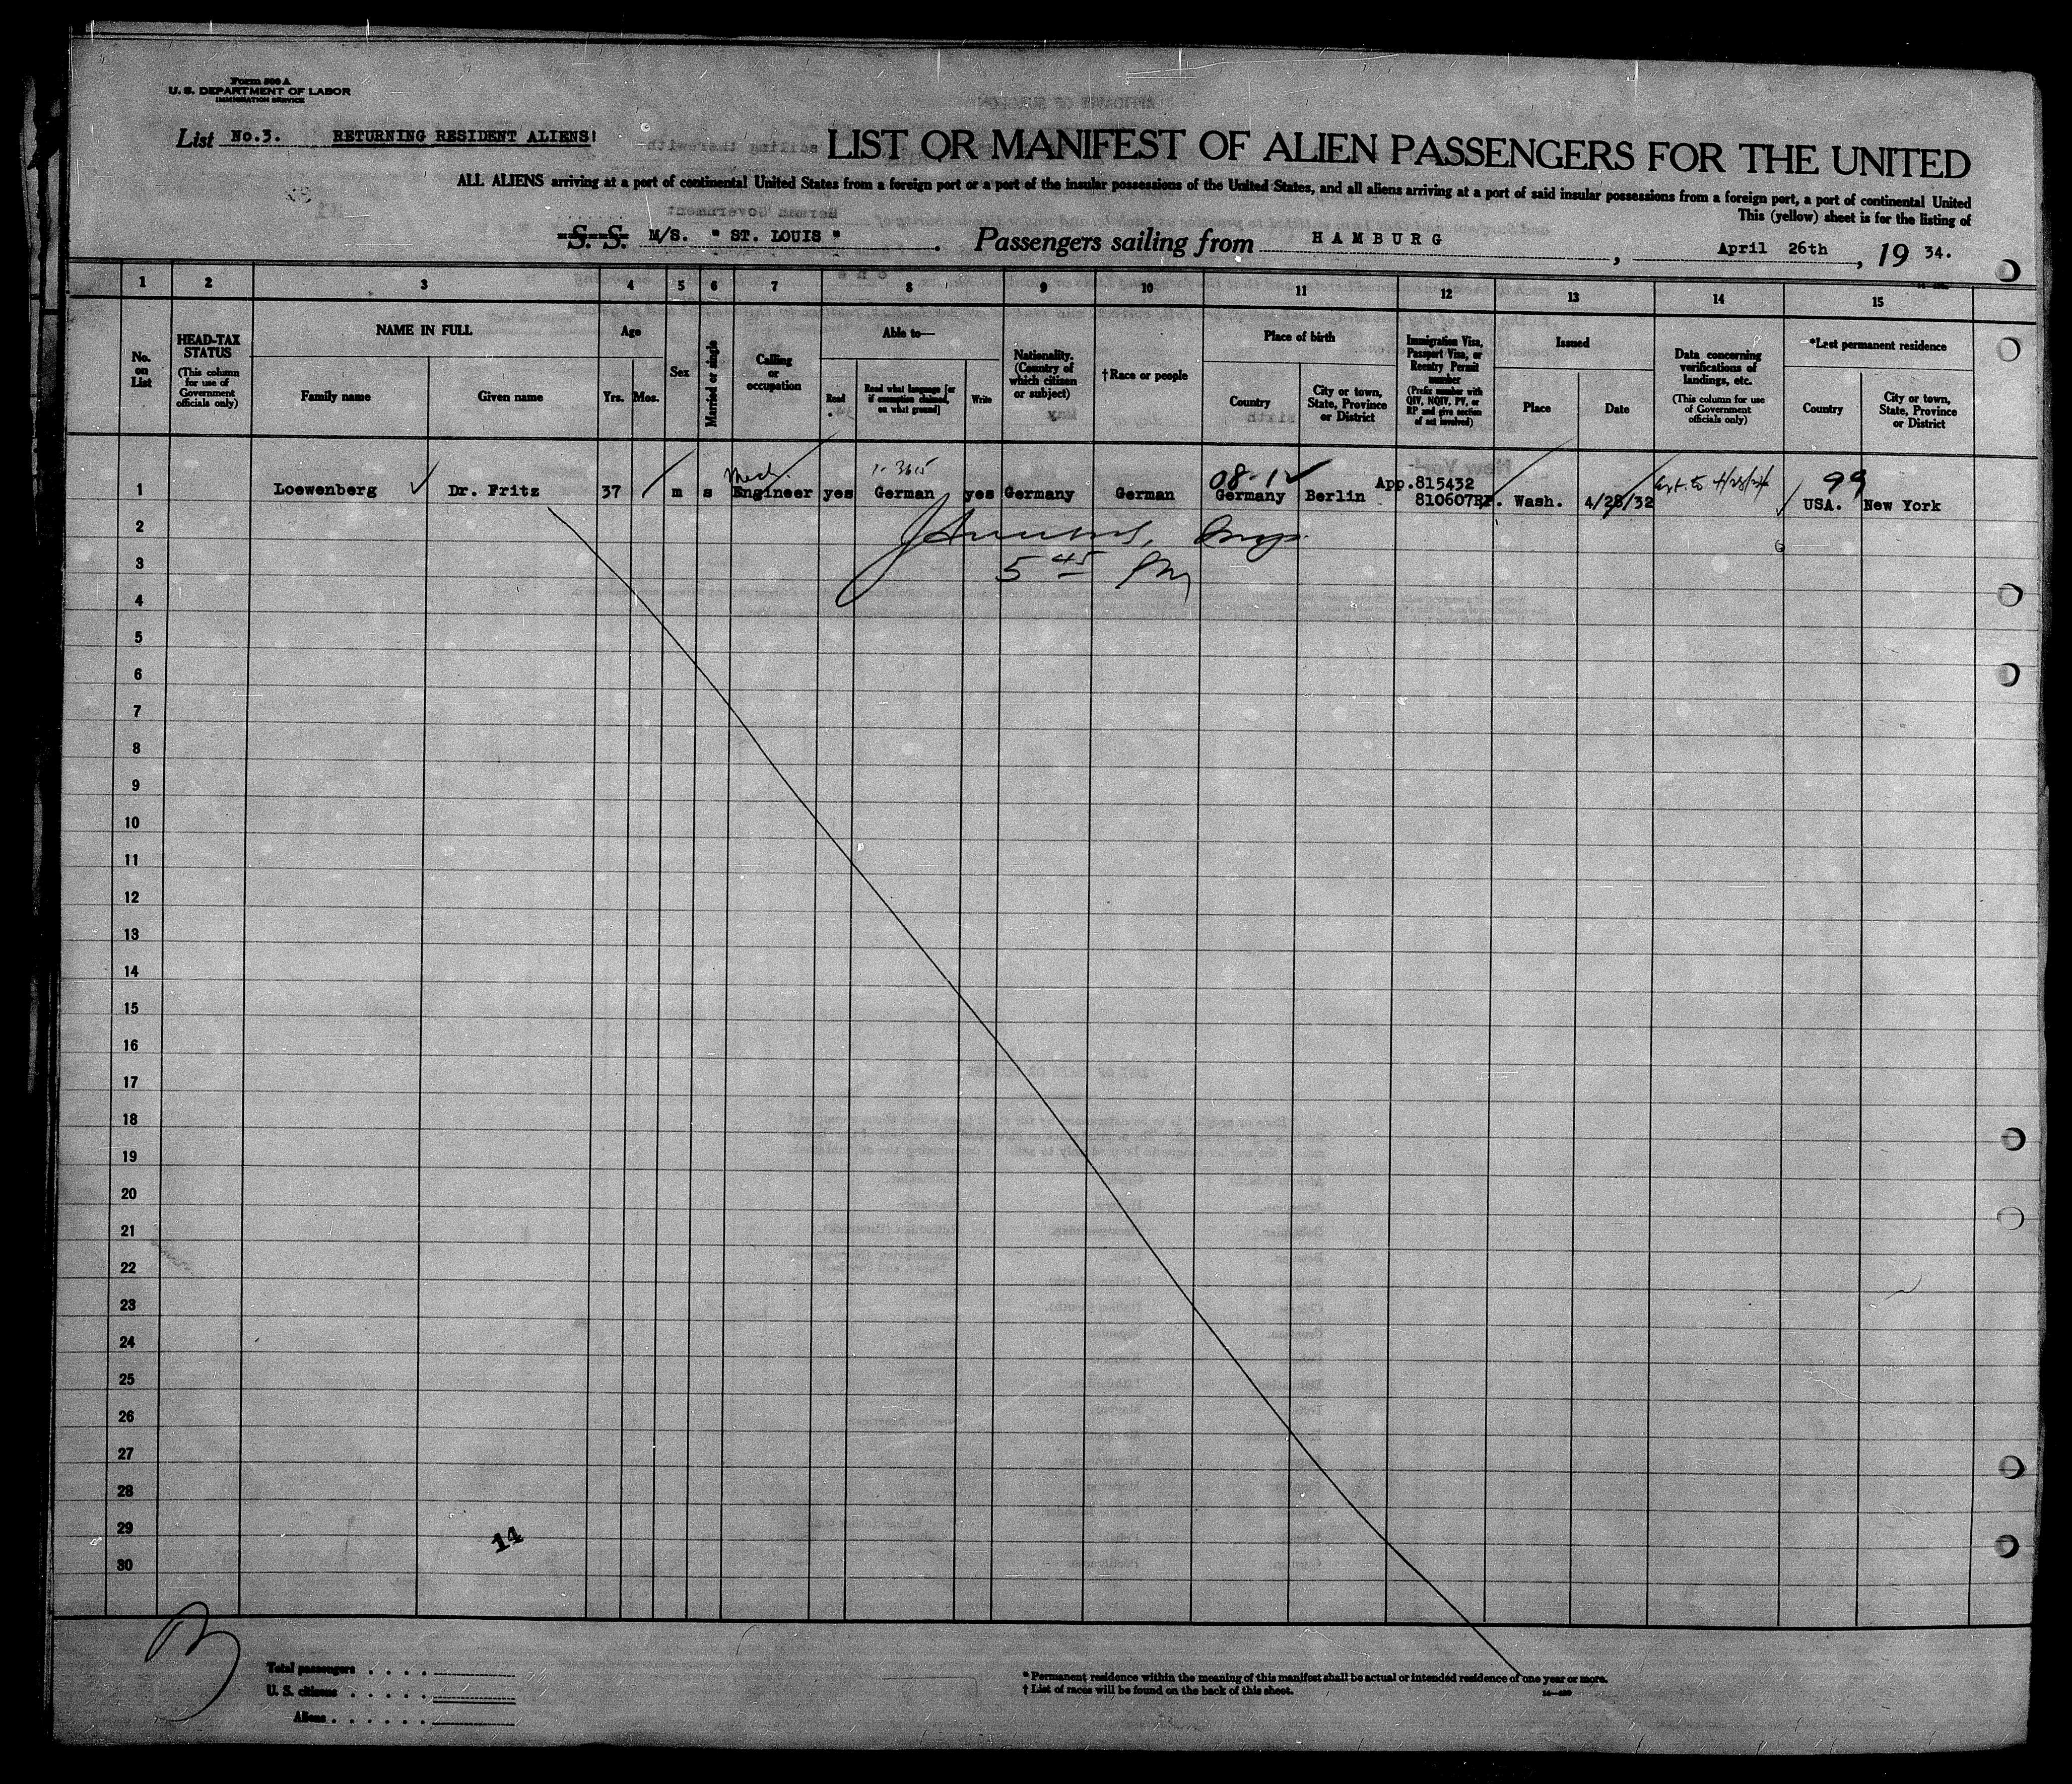 Form 500 A
U. S. DEPARTMENT OF LABOR
IMMIGRATION SERVICE
List No.3. RETURNING RESIDENT ALIENS!
LIST OR MANIFEST OF ALIEN PASSENGERS FOR THE UNITED
ALL ALIENS arriving at a port of continental United States from a foreign port or a port of the insular possessions of the United States, and all aliens arriving at a port of said insular possessions from a foreign port, a port of continental United
This (yellow) sheet is for the listing of
S. S. M/S. " ST. LOUIS " . Passengers sailing from HAMBURG , April 26th , 19 34.
1 2 3 4 5 6 7 8 9 10 11 12 13 14 15
No. on List
HEAD-TAX STATUS
(This column for use of Government officials only)
NAME IN FULL
Family name
Given name
Age
Yrs. Mos.
Sex
Married or single
Calling or occupation
Able to—
Read
Read what language [or if exemption claimed, on what ground]
Write
Nationality. (Country of which citizen or subject)
†Race or people
Place of birth
Country
City or town, State, Province or District
Immigration Visa, Passport Visa, or Reentry Permit number
(Prefix number with QIV, NQIV, PV, or RP and give section of act involved)
Issued
Place
Date
Data concerning verifications of landings, etc.
(This column for use of Government officials only)
*Last permanent residence
Country
City or town, State, Province or District
Med. 08-1 App.815432 99
1 Loewenberg Dr. Fritz 37 m s Engineer yes German yes Germany German Germany Berlin 810607RP. Wash. 4/28/32 USA. New York
2
3 5 45 PM
4
5
6
7
8
9
10
11
12
13
14
15
16
17
18
19
20
21
22
23
24
25
26
27
28
29
14
30
Total passengers . . . .
U. S. citizens . . . . .
Aliens . . . . . .
* Permanent residence within the meaning of this manifest shall be actual or intended residence of one year or more.
† List of races will be found on the back of this sheet.